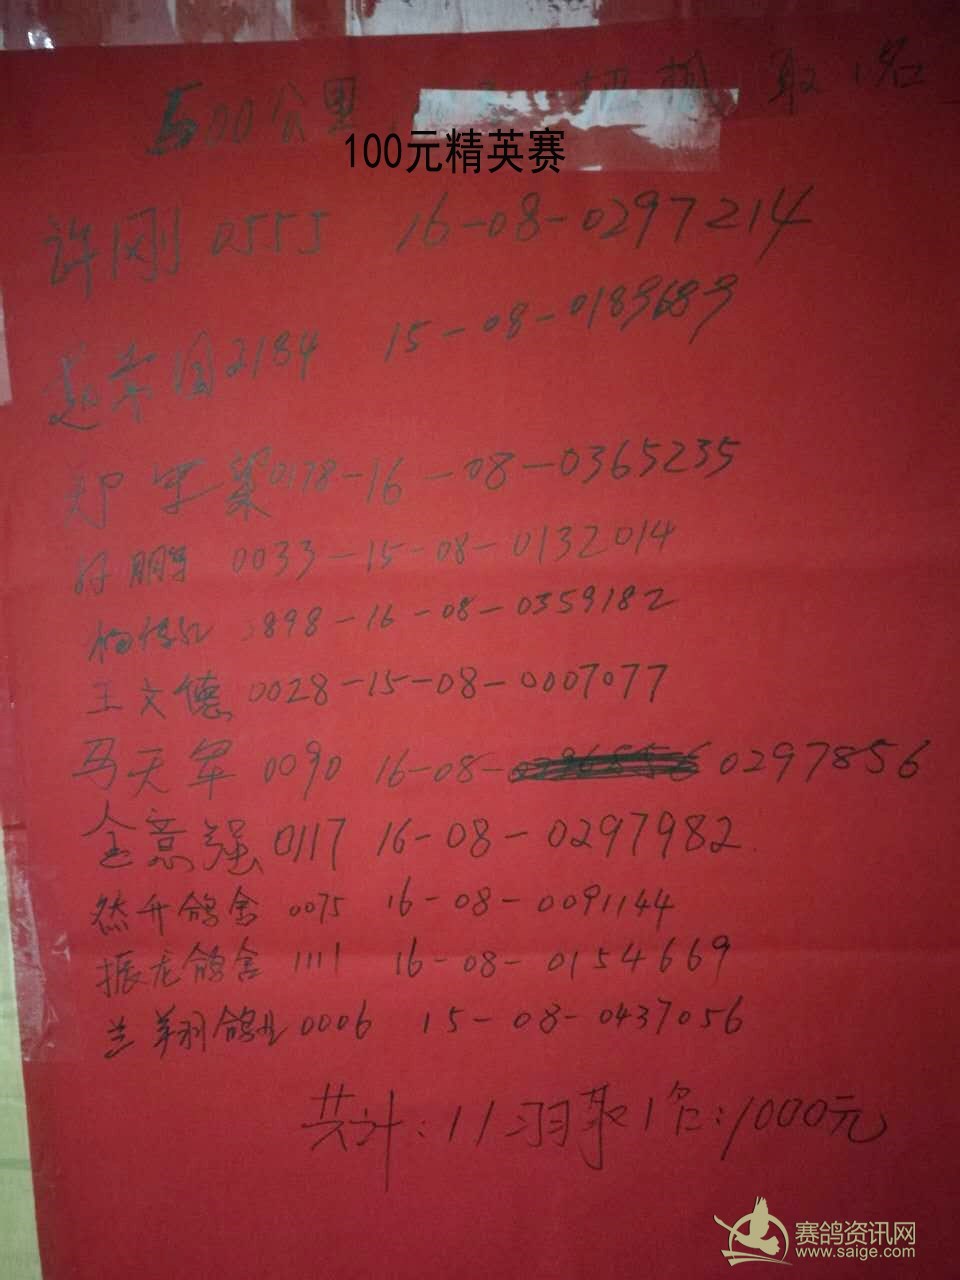 500公里 取1名
100元精英赛
许刚 0555 16-08-0297214
赵荣国 2184 15-08-0189689
郑军梁 0178-16-08-0365235
孙鹏 0033-15-08-0132014
898-16-08-0359182
王文德 0028-15-08-0007077
马天军 0090 16-08- 0297856
金意强 0117 16-08-0297982
然升鸽舍 0075 16-08-0091144
振龙鸽舍 1111 16-08-0154669
兰翔鸽业 0006 15-08-0437056
共计：11羽取1名：1000元
赛鸽资讯网
www.saige.com